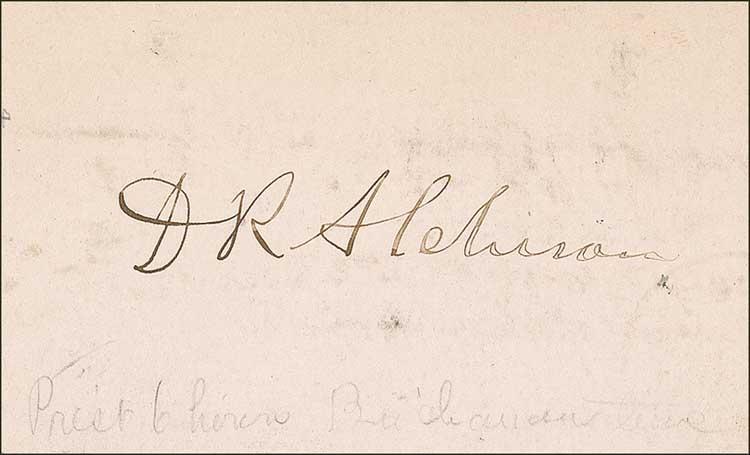 D R Atchison
Prest 6 hours Buchanans time